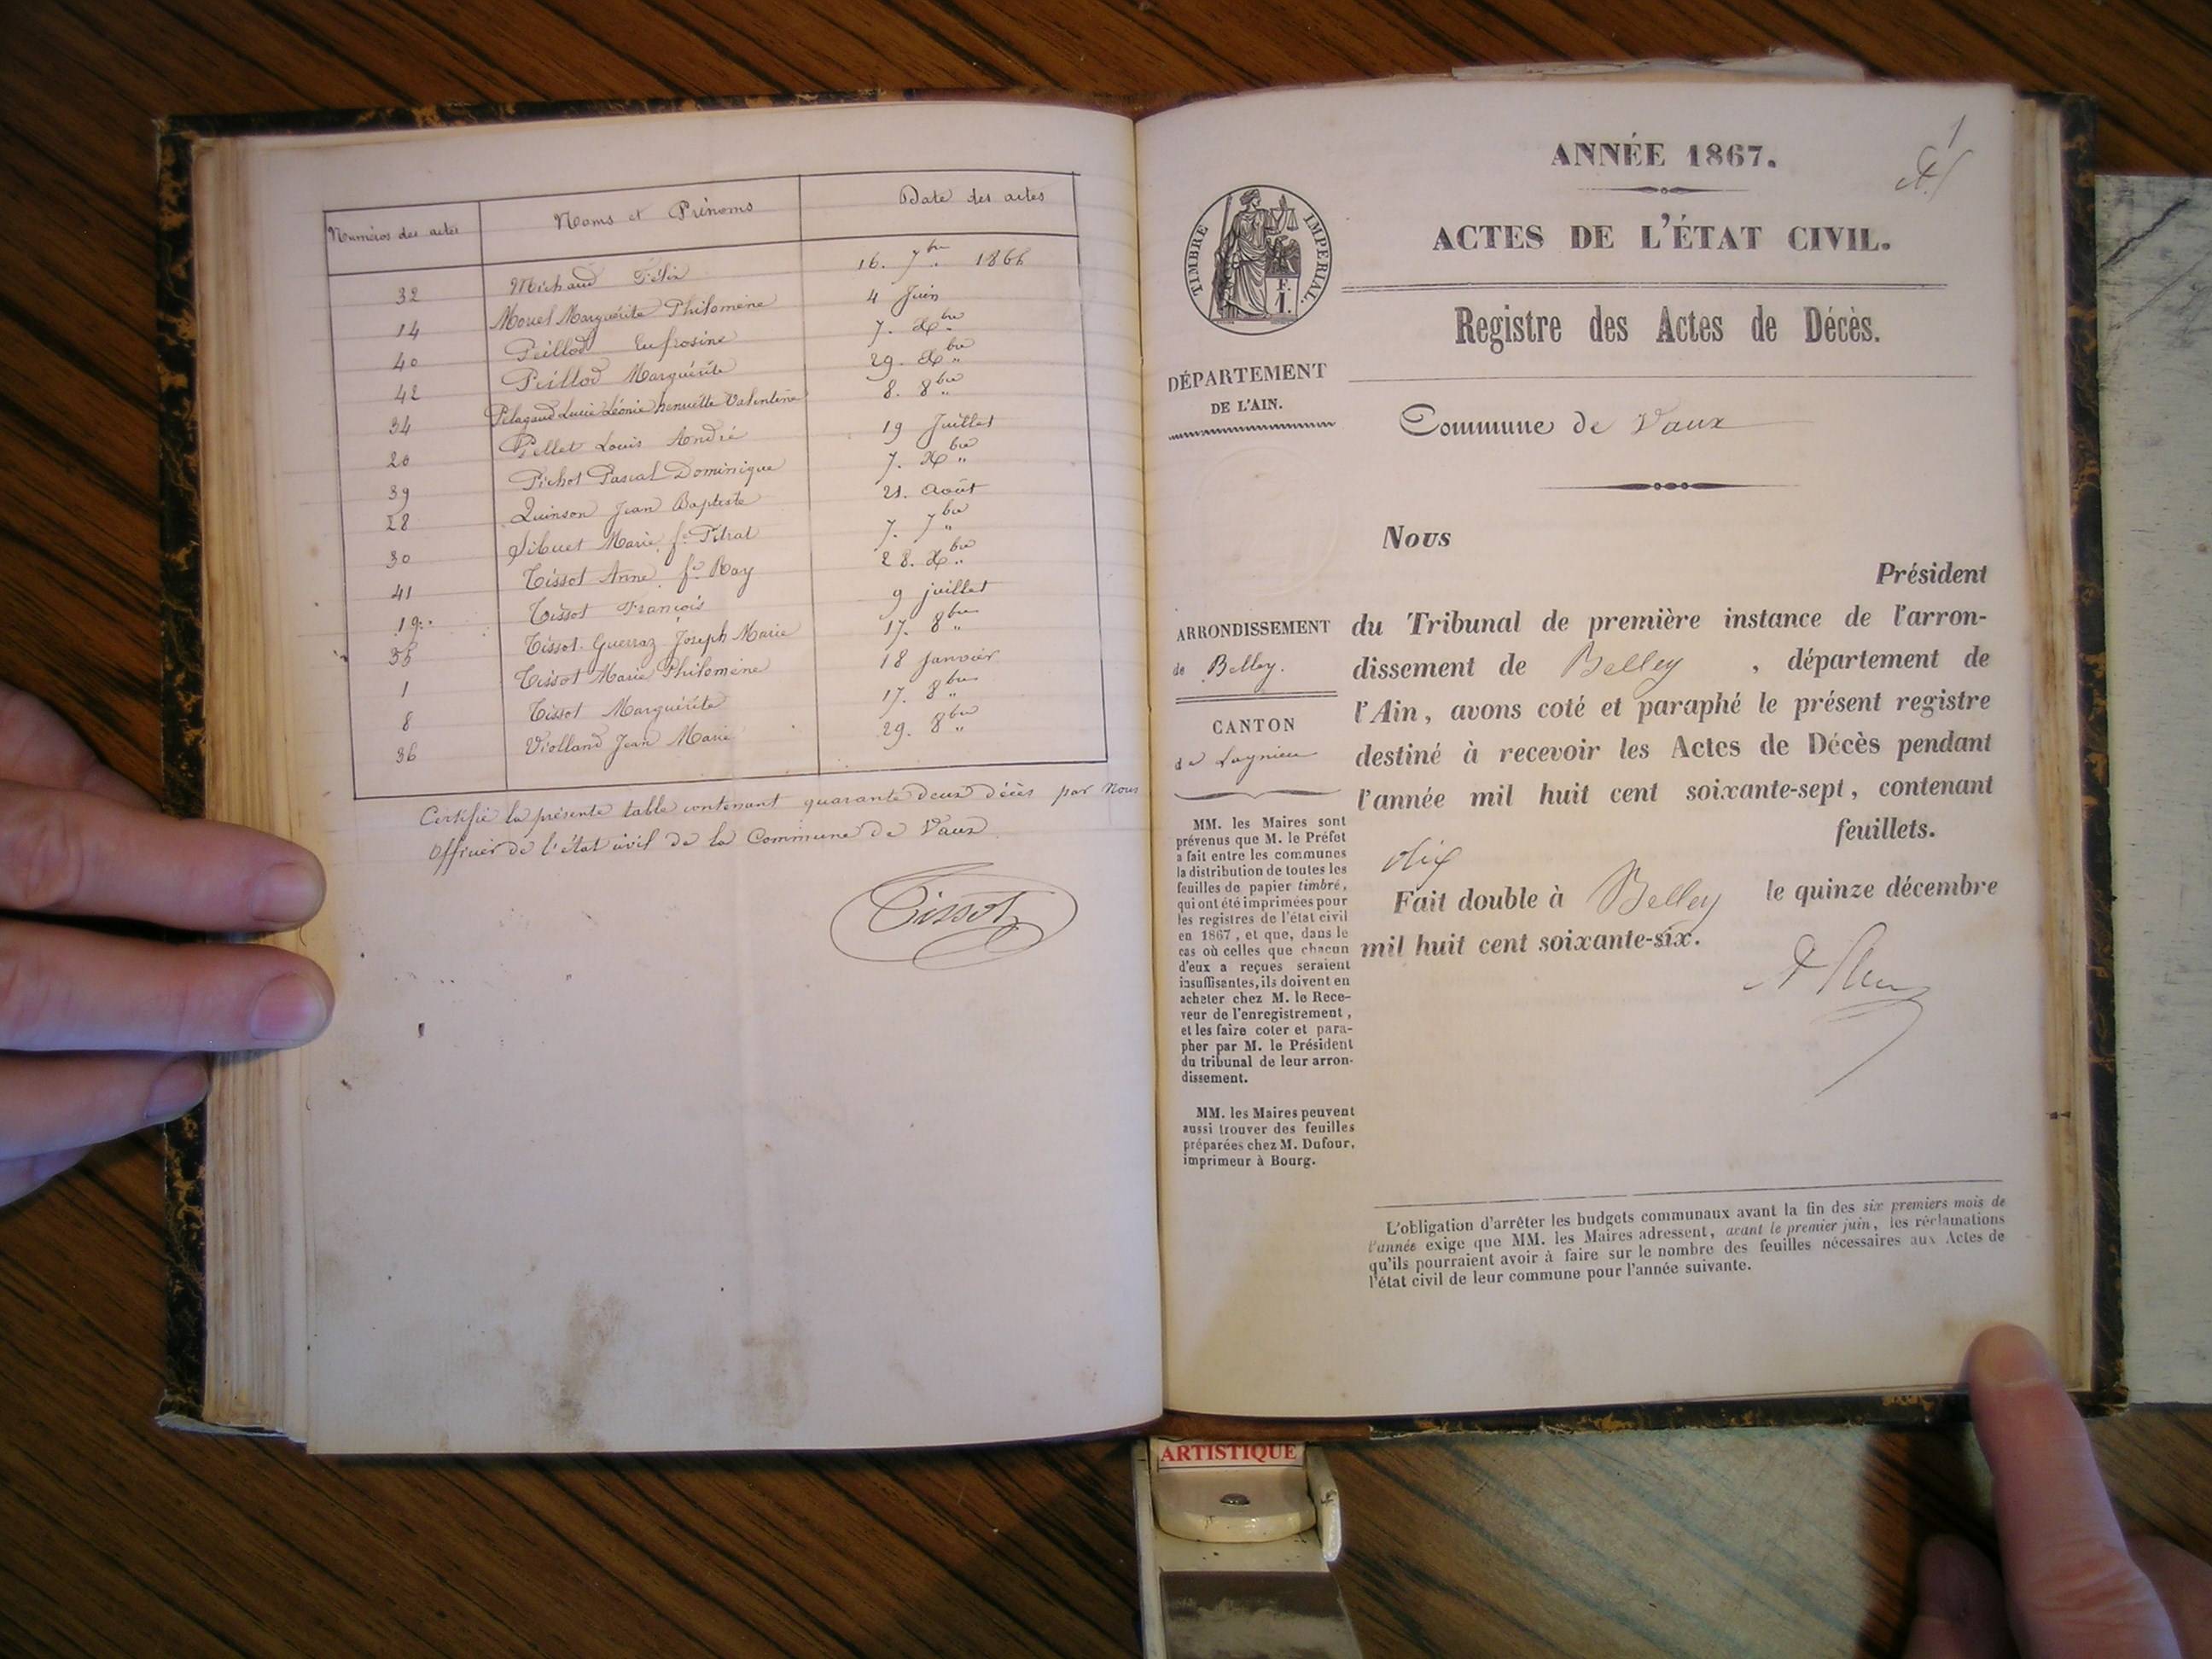 Numéros des actes Noms et Prénoms Date des actes
32 Michaud Félix 16. 7bre. 1866
14 Morel Marguérite Philomène 4 Juin
40 Peillod Eufrosine 7. Xbre "
42 Peillod Marguérite 29. Xbre "
34 Pélagaud Lucie Léonie henriette Valentine 8. 8bre "
20 Pellet Louis André 19 Juillet
39 Pichot Pascal Dominique 7. Xbre "
28 Quinson Jean Baptiste 21. Août
30 Sibuet Marie fe Pitrat 7. 7bre "
41 Tissot Anne fe Ray 28. Xbre "
19 Tissot François 9 juillet
35 Tissot. Guerraz Joseph Marie 17. 8bre "
1 Tissot Marie Philomène 18 Janvier
8 Tissot Marguérite 17. 8bre "
36 Violland Jean Marie 29. 8bre "
Certifié la présente table contenant quarante deux décès par Nous
Officier de l'état civil de la Commune de Vaux
Tissot
1
ANNÉE 1867.
ACTES DE L'ÉTAT CIVIL.
TIMBRE IMPÉRIAL.
F.
1.
Registre des Actes de Décès.
DÉPARTEMENT
DE L'AIN.
Commune de Vaux
Nous
Président
du Tribunal de première instance de l'arron-
dissement de Belley , département de
l'Ain, avons coté et paraphé le présent registre
destiné à recevoir les Actes de Décès pendant
l'année mil huit cent soixante-sept, contenant
dix feuillets.
Fait double à Belley le quinze décembre
mil huit cent soixante-six.
ARRONDISSEMENT
de Belley.
CANTON
de Lagnieu
MM. les Maires sont
prévenus que M. le Préfet
a fait entre les communes
la distribution de toutes les
feuilles de papier timbré,
qui ont été imprimées pour
les registres de l'état civil
en 1867, et que, dans le
cas où celles que chacun
d'eux a reçues seraient
insuffisantes, ils doivent en
acheter chez M. le Rece-
veur de l'enregistrement,
et les faire coter et para-
pher par M. le Président
du tribunal de leur arron-
dissement.
MM. les Maires peuvent
aussi trouver des feuilles
préparées chez M. Dufour,
imprimeur à Bourg.
L'obligation d'arrêter les budgets communaux avant la fin des six premiers mois de
l'année exige que MM. les Maires adressent, avant le premier juin, les réclamations
qu'ils pourraient avoir à faire sur le nombre des feuilles nécessaires aux Actes de
l'état civil de leur commune pour l'année suivante.
ARTISTIQUE